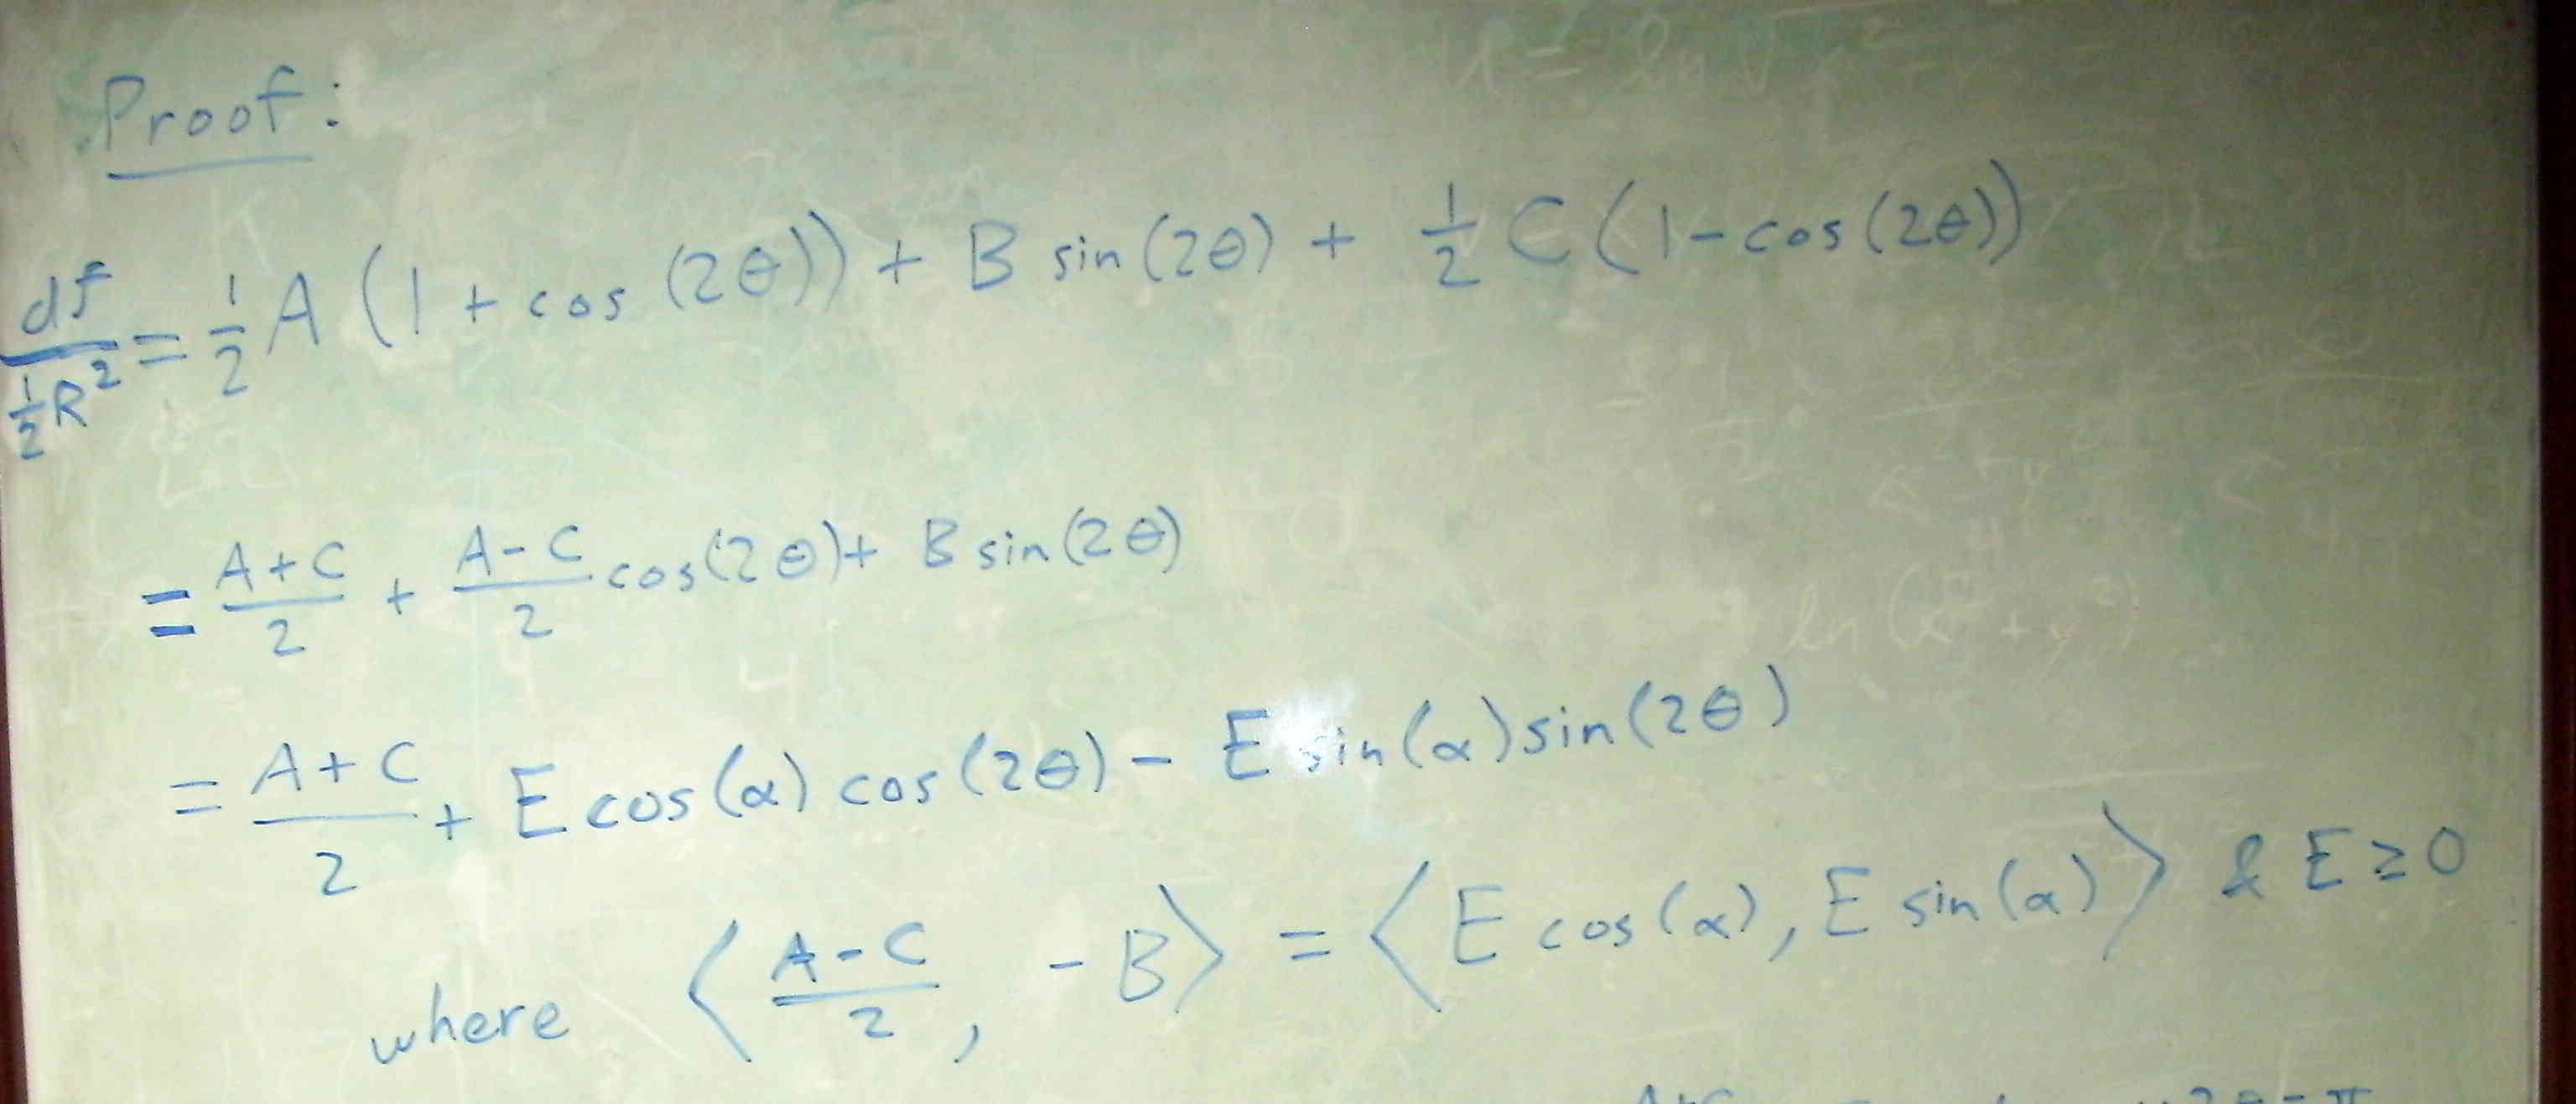 Proof:
df / ½R² = ½ A (1 + cos (2θ)) + B sin (2θ) + ½ C (1 - cos (2θ))
= (A + C)/2 + (A - C)/2 cos(2θ) + B sin(2θ)
= (A + C)/2 + E cos(α) cos(2θ) - E sin(α) sin(2θ)
where ⟨(A - C)/2, -B⟩ = ⟨E cos(α), E sin(α)⟩ & E ≥ 0